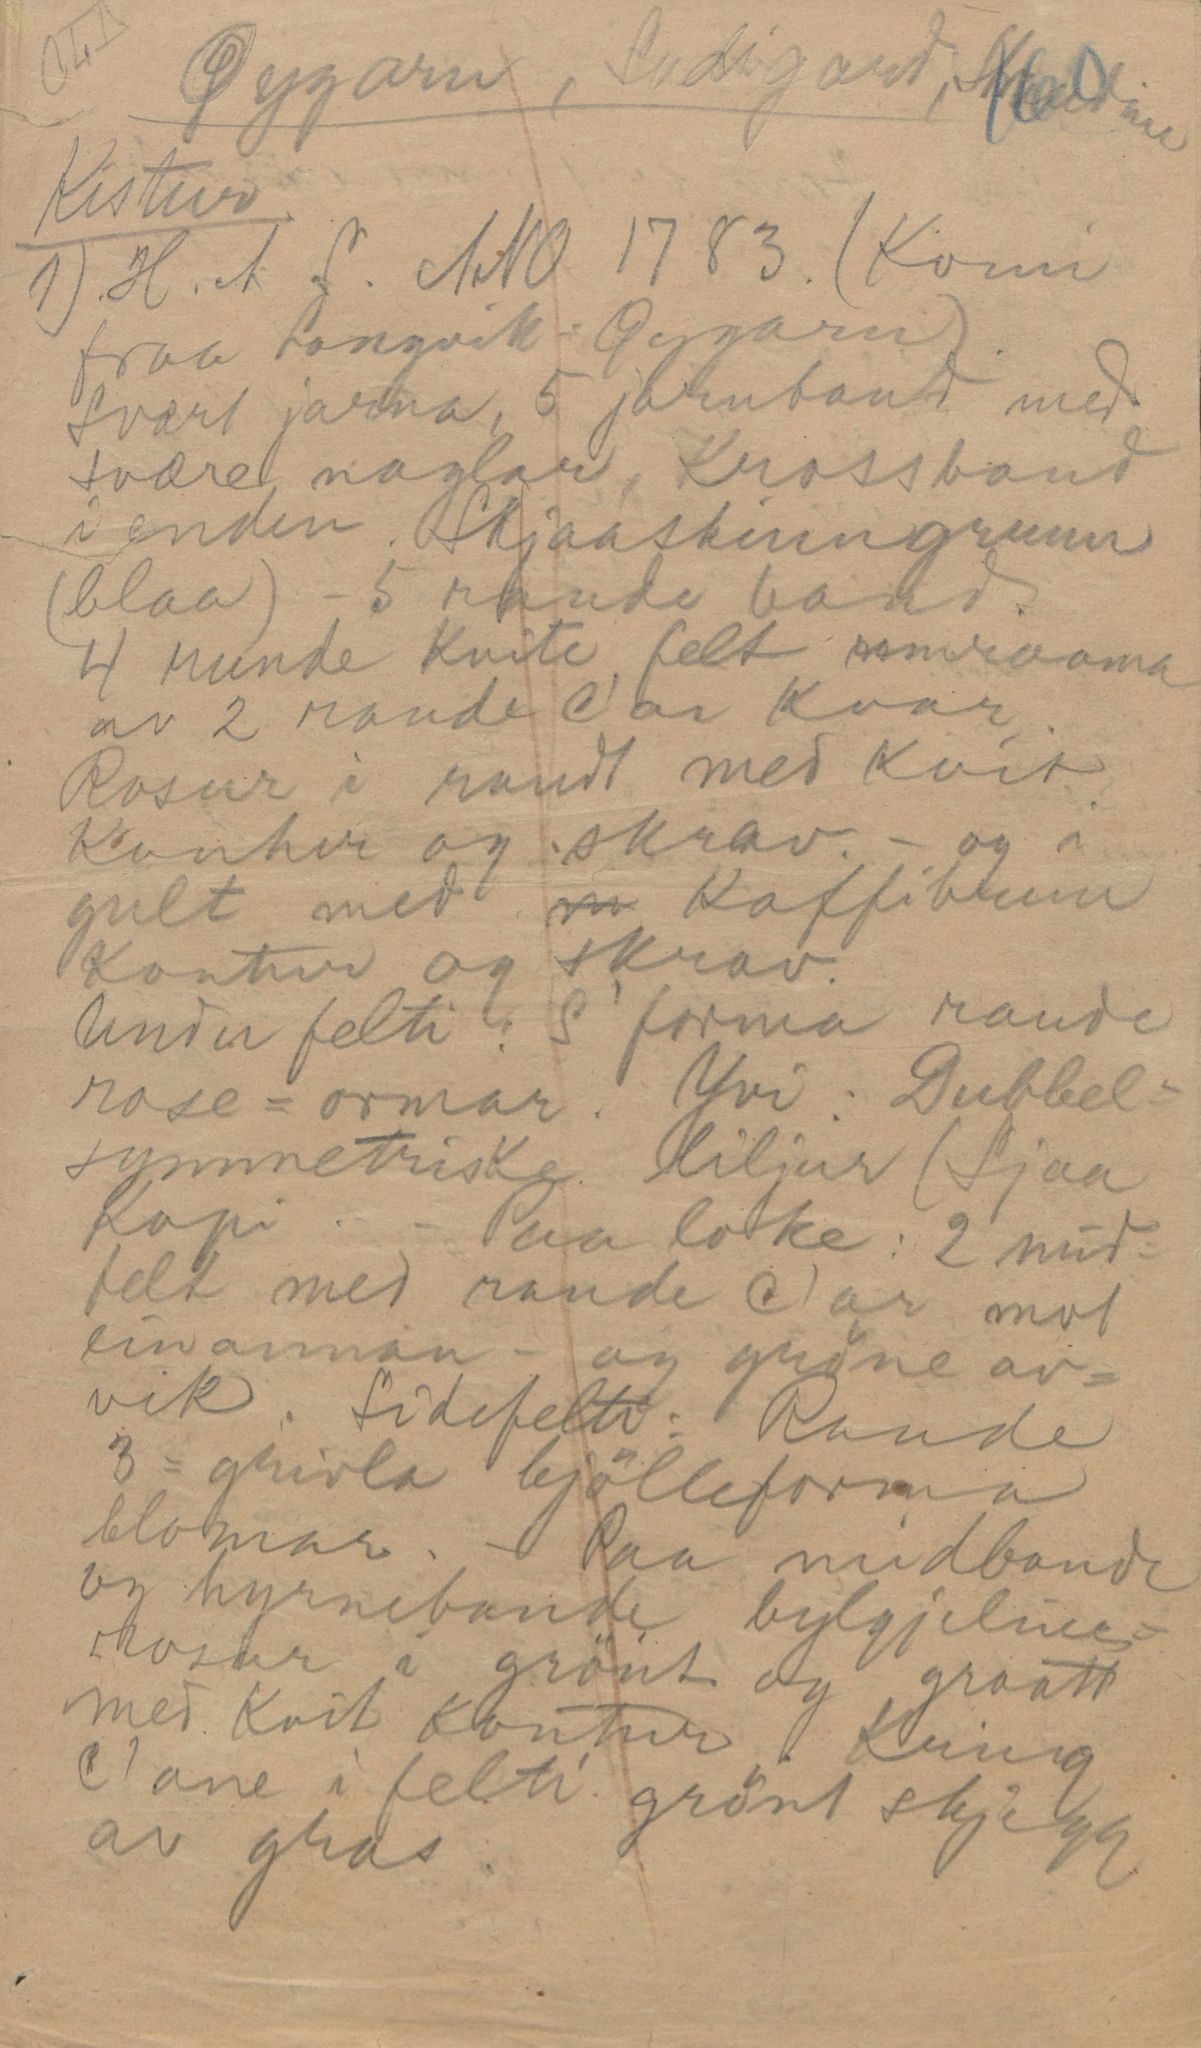 141
Øygarn, Sudigard,
Kistur
1). H. A S. ANO 1783. (Komi
fraa Longvik = Øygarn).
Svært jarna, 5 jarnband med
svære naglar, Krossband
i enden. Skjaaskinngrunn
(blaa) – 5 raude band.
4 runde kvite felt innraama
av 2 raude C'ar kvar.
Rosur i raudt med kvit
Kontur og skrav. – og i
gult med Kaffibrunn
Kontur og skrav.
Under felti: S'forma raude
rose = ormar. Yvi: Dubbel=
symmetriske liljur (Sjaa
Kopi. – Paa loke: 2 mid=
felt med raude C'ar mot
einannan – og gröne av=
vik. Sidefelti: Raude
3 = greirla bjölleforma
blomar. – Paa midbande
og hyrnebande bylgjeline=
rosur i grönt og graatt
med kvit kontur. Kring
C'ane i felti grönt skjegg
av gras.